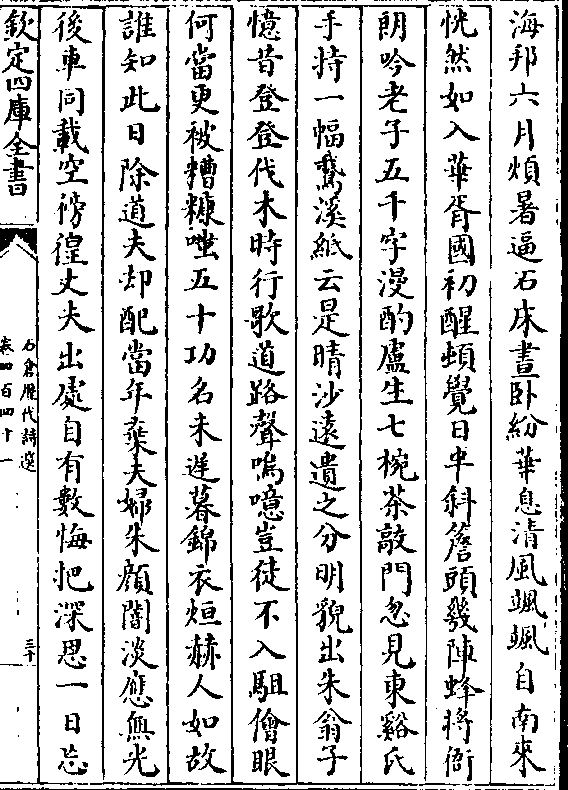 海邦六月煩暑逼石床晝卧紛華息清風颯颯自南來
恍然如入華胥國初醒頓覺日半斜簷頭幾陣蜂將衙
朗吟老子五千字漫酌盧生七椀茶敲門忽見東谿氏
手持一幅鵞溪紙云是晴沙遠遺之分明貌出朱翁子
憶昔登登伐木時行歌道路聲嗚噫豈徒不入駔儈眼
何當更被糟糠嗤五十功名未遟暮錦衣烜赫人如故
誰知此日除道夫却配當年棄夫婦朱顔闇淡應無光
後車同載空徬徨丈夫出處自有數悔把深恩一日忘
欽定四庫全書
石倉歷代詩選
卷四百四十一
三十